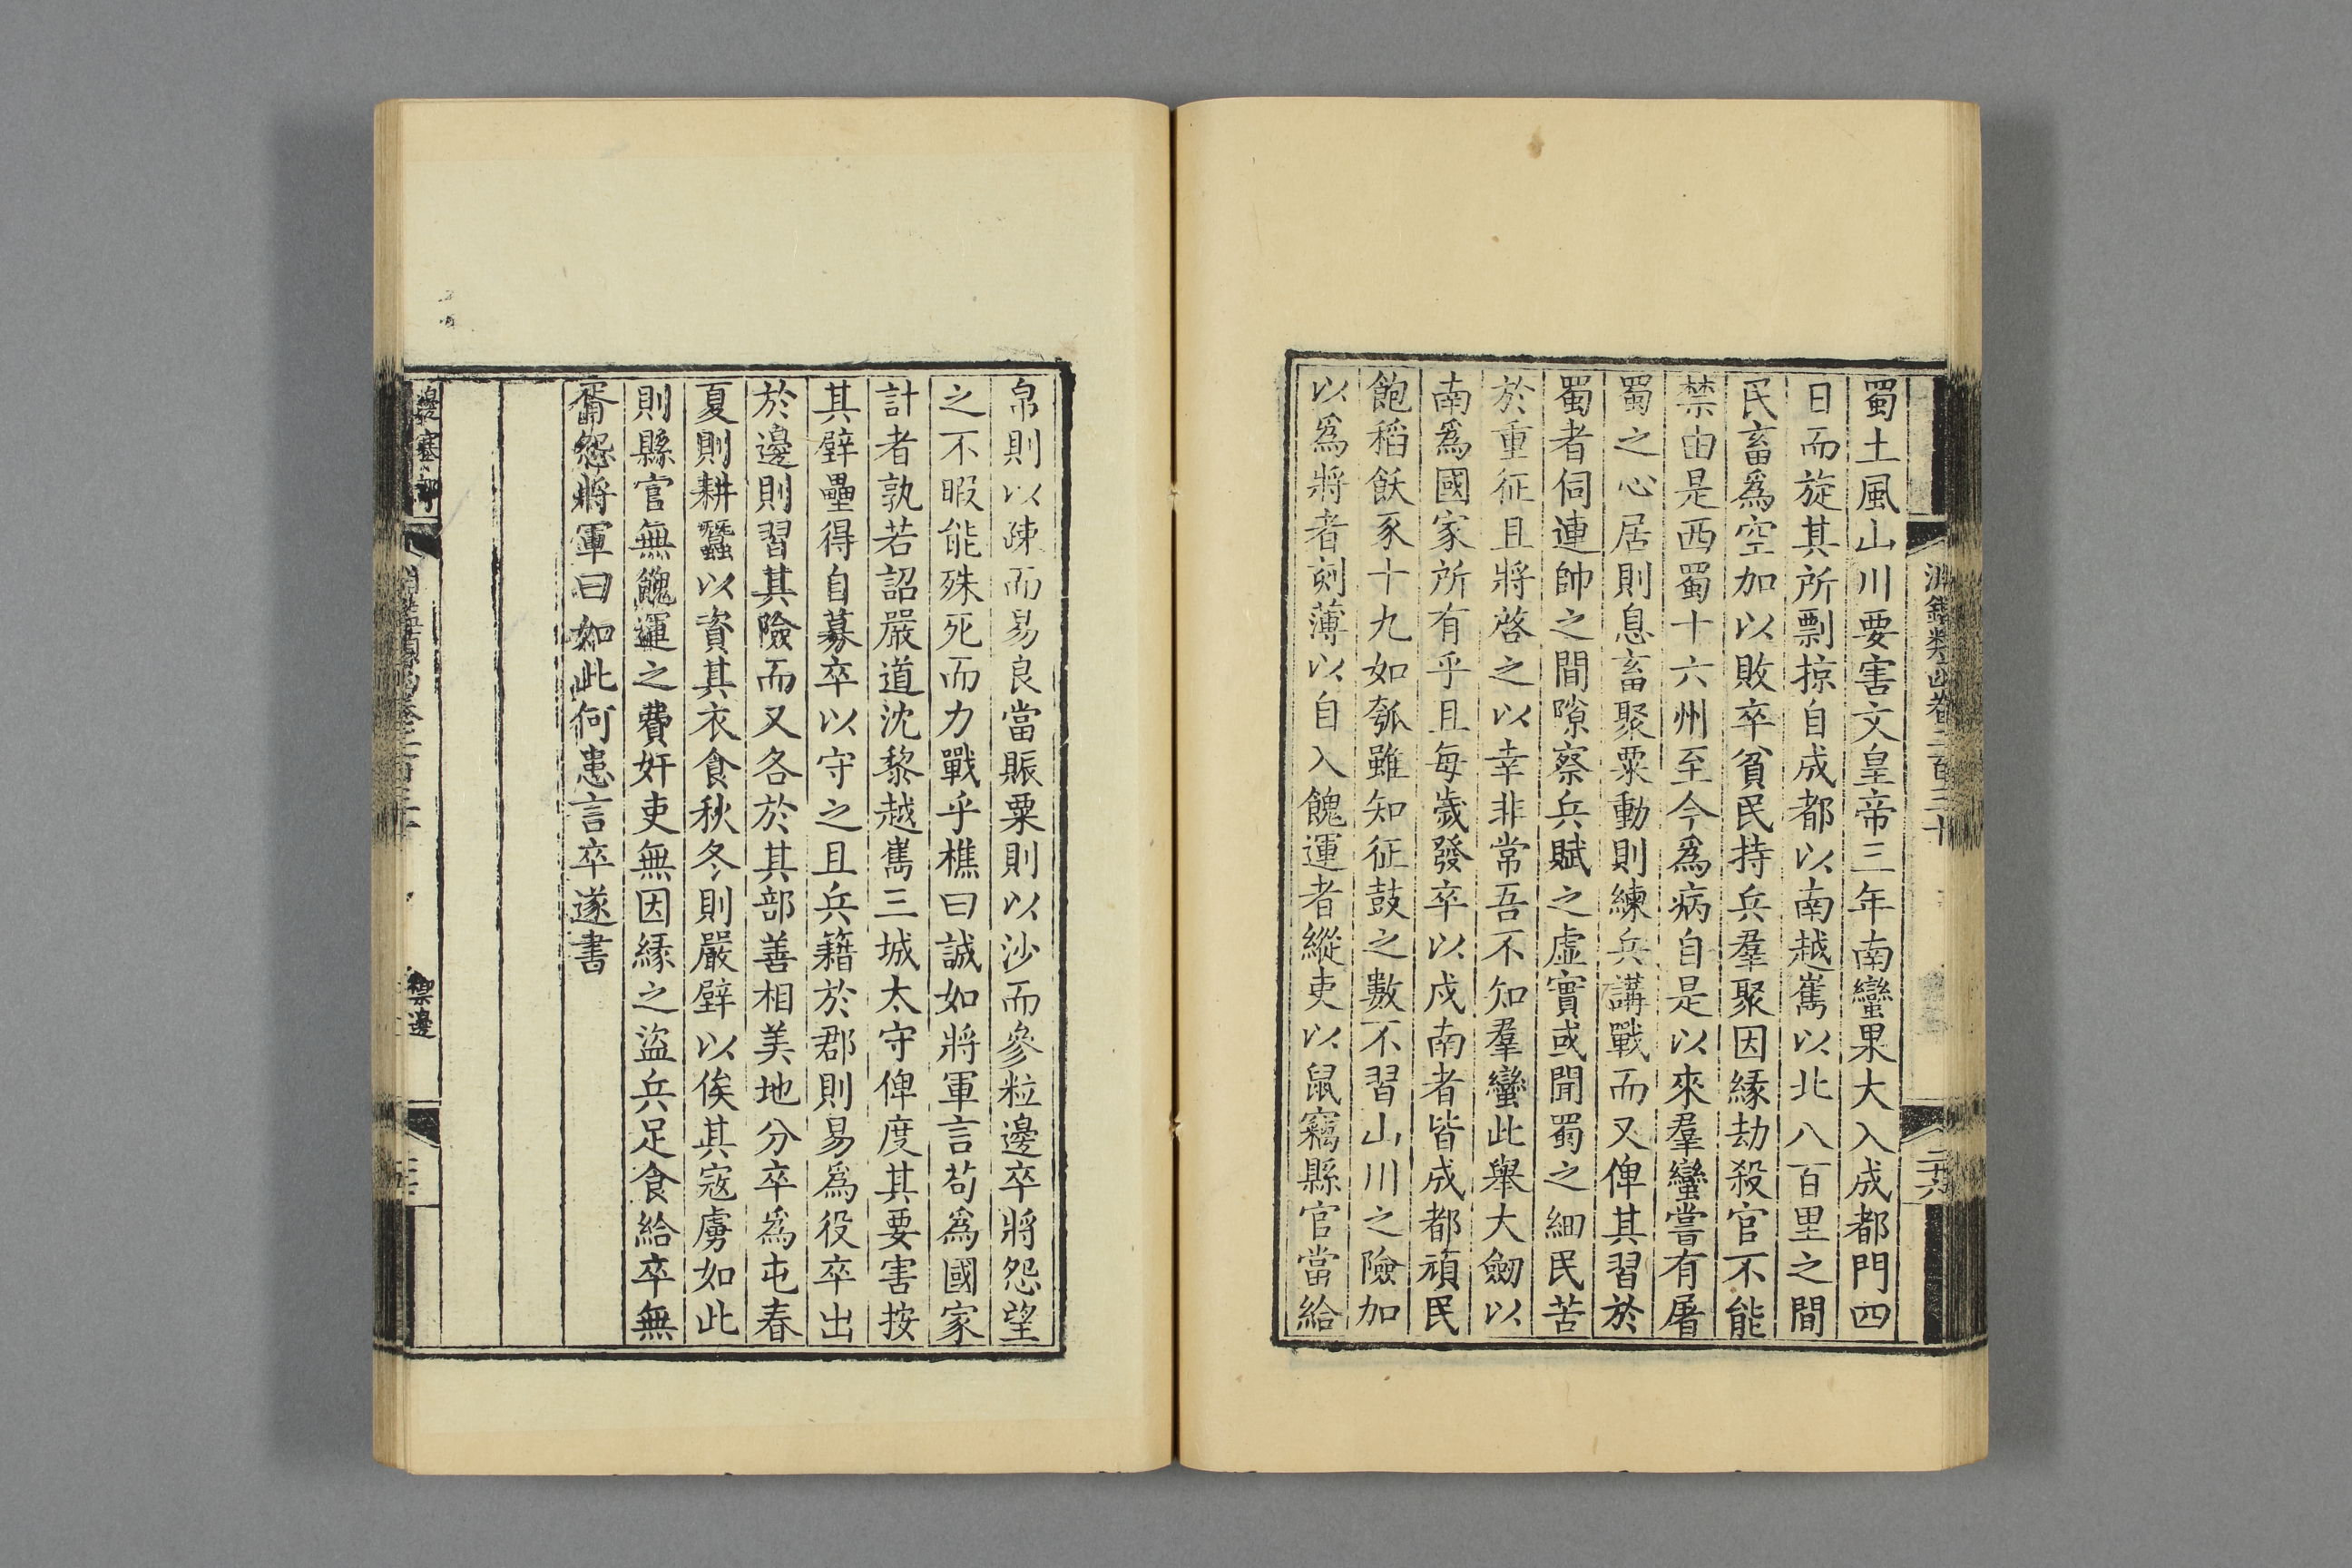 淵鑑類函卷二百三十
二十六
蜀土風山川要害文皇帝三年南蠻果大入成都門四
日而旋其所剽掠自成都以南越嶲以北八百里之間
民畜爲空加以敗卒貧民持兵羣聚因緣劫殺官不能
禁由是西蜀十六州至今爲病自是以來羣蠻嘗有屠
蜀之心居則息畜聚粟動則練兵講戰而又俾其習於
蜀者伺連帥之間隙察兵賦之虛實或聞蜀之細民苦
於重征且將啓之以幸非常吾不知羣蠻此舉大劒以
南爲國家所有乎且每歲發卒以戍南者皆成都頑民
飽稻飫豕十九如瓠雖知征鼓之數不習山川之險加
以爲將者刻薄以自入餽運者縱吏以鼠竊縣官當給
帛則以疎而易良當賑粟則以沙而參粒邊卒將怨望
之不暇能殊死而力戰乎樵曰誠如將軍言苟爲國家
計者孰若詔嚴道沈黎越嶲三城太守俾度其要害按
其壁壘得自募卒以守之且兵籍於郡則易爲役卒出
於邊則習其險而又各於其部善相美地分卒爲屯春
夏則耕蠶以資其衣食秋冬則嚴壁以俟其寇虜如此
則縣官無餽運之費奸吏無因緣之盜兵足食給卒無
胥怨將軍曰如此何患言卒遂書
邊塞部
禦邊